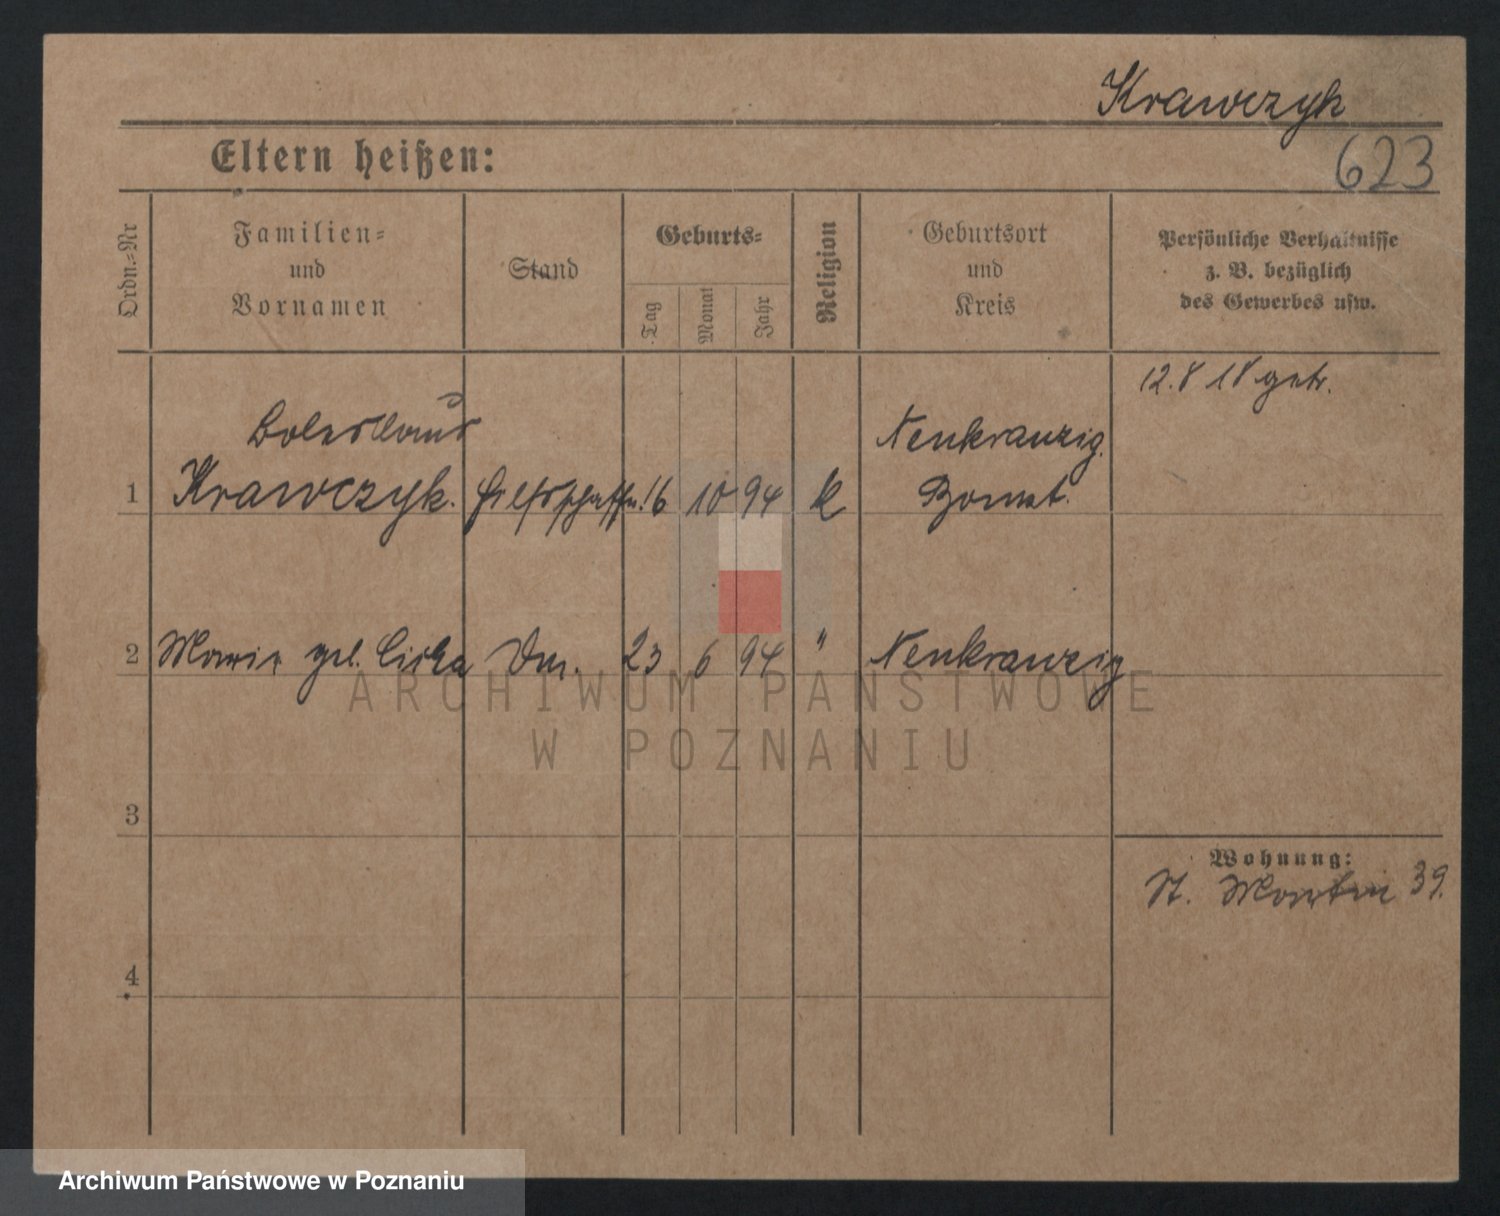 Krawczyk
Eltern heißen:
623
Ordn.-Nr
Familien-
und
Vornamen
Stand
Geburts-
Tag
Monat
Jahr
Religion
Geburtsort
und
Kreis
Persönliche Verhältnisse
z. B. bezüglich
des Gewerbes usw.
12.8 18 getr.
Boleslaus
Neukranzig
1 Krawczyk. Hilfsschaffn. 16 10 94 k Bomst.
2 Marie geb. 23 6 94 " Neukranzig
ARCHIWUM PAŃSTWOWE
W POZNANIU
3
Wohnung:
St. Martin 39.
4
Archiwum Państwowe w Poznaniu